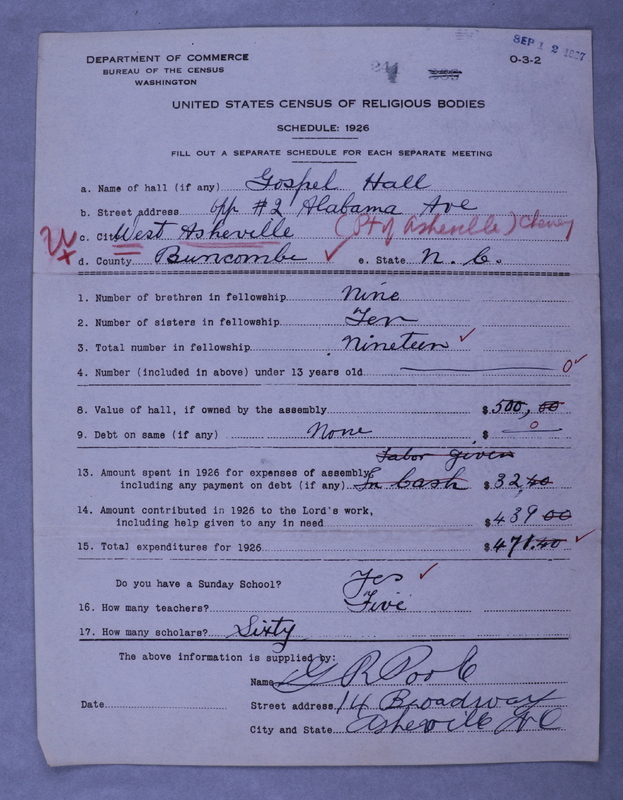 SEP 12 1927
DEPARTMENT OF COMMERCE
BUREAU OF THE CENSUS
WASHINGTON
0-3-2
UNITED STATES CENSUS OF RELIGIOUS BODIES
SCHEDULE: 1926
FILL OUT A SEPARATE SCHEDULE FOR EACH SEPARATE MEETING
a. Name of hall (if any) Gospel Hall
b. Street address Opp #2 Alabama Ave
c. City West Asheville (Pt of Asheville)
d. County Buncombe ✓ e. State N. C.
1. Number of brethren in fellowship Nine
2. Number of sisters in fellowship Ten
3. Total number in fellowship Nineteen ✓
4. Number (included in above) under 13 years old 0 ✓
8. Value of hall, if owned by the assembly $ 500, 00
9. Debt on same (if any) None $ 0
Labor given
13. Amount spent in 1926 for expenses of assembly,
including any payment on debt (if any) In Cash $ 32.40
14. Amount contributed in 1926 to the Lord's work,
including help given to any in need $ 439 00
15. Total expenditures for 1926 $ 471.40 ✓
Do you have a Sunday School? Yes ✓
16. How many teachers? Five
17. How many scholars? Sixty
The above information is supplied by:
Name G R Pool
Date Street address 14 Broadway
City and State Asheville N C